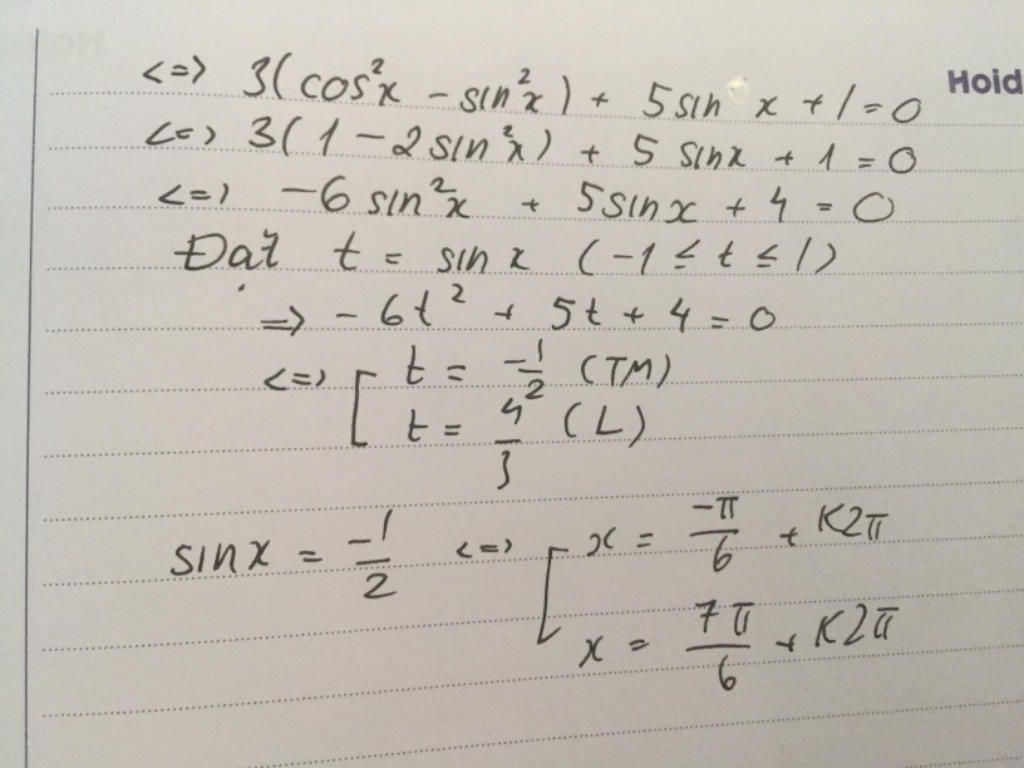 <=> 3(cos²x - sin²x) + 5sin x + 1 = 0
Hoid
<=> 3(1 - 2sin²x) + 5 sinx + 1 = 0
<=> -6 sin²x + 5sinx + 4 = 0
Đặt t = sin x (-1 ≤ t ≤ 1)
=> -6t² + 5t + 4 = 0
<=> [ t = -1/2 (TM)
t = 4/3 (L)
sinx = -1/2 <=> [ x = -π/6 + K2π
x = 7π/6 + K2π